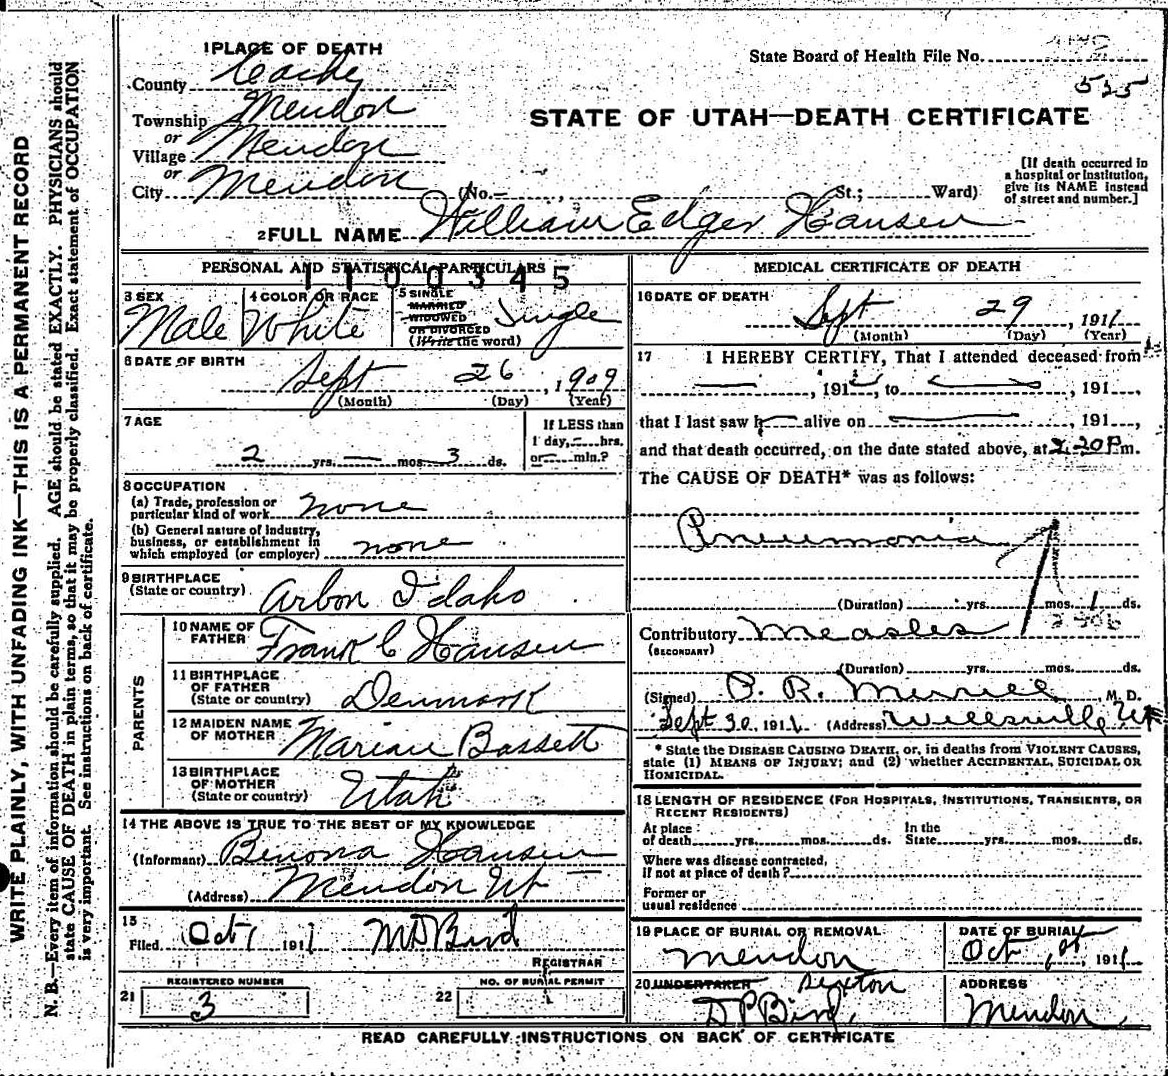 WRITE PLAINLY, WITH UNFADING INK—THIS IS A PERMANENT RECORD
N. B.—Every item of information should be carefully supplied. AGE should be stated EXACTLY. PHYSICIANS should
state CAUSE OF DEATH in plain terms, so that it may be properly classified. Exact statement of OCCUPATION
is very important. See instructions on back of certificate.
1 PLACE OF DEATH
County Cache
Township Mendon
or
Village Mendon
or
City Mendon (No. St.; Ward)
State Board of Health File No.
525
STATE OF UTAH—DEATH CERTIFICATE
[If death occurred in
a hospital or institution,
give its NAME instead
of street and number.]
2 FULL NAME William Edger Hansen
PERSONAL AND STATISTICAL PARTICULARS
1100345
3 SEX
Male
4 COLOR OR RACE
White
5 SINGLE
MARRIED
WIDOWED
OR DIVORCED
(Write the word)
Single
6 DATE OF BIRTH
Sept 26, 1909
(Month) (Day) (Year)
7 AGE
2 yrs. — mos. 3 ds.
If LESS than
1 day, hrs.
or min.?
8 OCCUPATION
(a) Trade, profession or
particular kind of work none
(b) General nature of industry,
business, or establishment in
which employed (or employer) none
9 BIRTHPLACE
(State or country) Arbon Idaho
PARENTS
10 NAME OF
FATHER Frank C Hansen
11 BIRTHPLACE
OF FATHER
(State or country) Denmark
12 MAIDEN NAME
OF MOTHER Marian Bassett
13 BIRTHPLACE
OF MOTHER
(State or country) Utah
14 THE ABOVE IS TRUE TO THE BEST OF MY KNOWLEDGE
(Informant) Benona Hansen
(Address) Mendon Ut
15
Filed Oct 1 1911 M D Bird
REGISTRAR
REGISTERED NUMBER
21 3
NO. OF BURIAL PERMIT
22 1
MEDICAL CERTIFICATE OF DEATH
16 DATE OF DEATH
Sept 29, 1911
(Month) (Day) (Year)
17 I HEREBY CERTIFY, That I attended deceased from
— , 191 , to — , 191
that I last saw h— alive on — , 191 ,
and that death occurred, on the date stated above, at 2.20 P m.
The CAUSE OF DEATH* was as follows:
Pneumonia
(Duration) yrs. mos. 1 ds.
Contributory Measles
(SECONDARY)
(Duration) yrs. mos. ds.
(Signed) B. R. Merrill M. D.
Sept 30, 1911 (Address) Wellsville Ut
* State the DISEASE CAUSING DEATH, or, in deaths from VIOLENT CAUSES,
state (1) MEANS OF INJURY; and (2) whether ACCIDENTAL, SUICIDAL OR
HOMICIDAL.
18 LENGTH OF RESIDENCE (FOR HOSPITALS, INSTITUTIONS, TRANSIENTS, OR
RECENT RESIDENTS)
At place
of death yrs. mos. ds.
In the
State yrs. mos. ds.
Where was disease contracted,
if not at place of death?
Former or
usual residence
19 PLACE OF BURIAL OR REMOVAL
Mendon
DATE OF BURIAL
Oct 1st, 1911
20 UNDERTAKER Sexton
D P Bird
ADDRESS
Mendon
READ CAREFULLY INSTRUCTIONS ON BACK OF CERTIFICATE